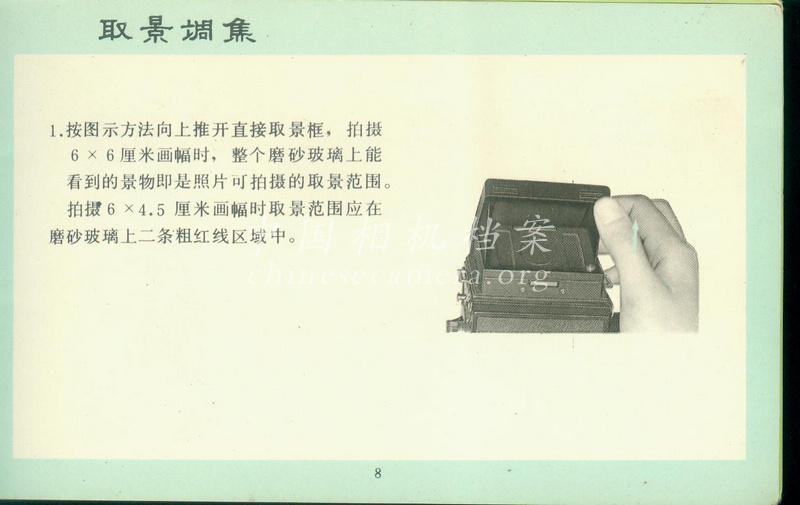 取景调集
1.按图示方法向上推开直接取景框，拍摄
6×6厘米画幅时，整个磨砂玻璃上能
看到的景物即是照片可拍摄的取景范围。
拍摄6×4.5厘米画幅时取景范围应在
磨砂玻璃上二条粗红线区域中。
中国相机档案
chinesecamera.org
8